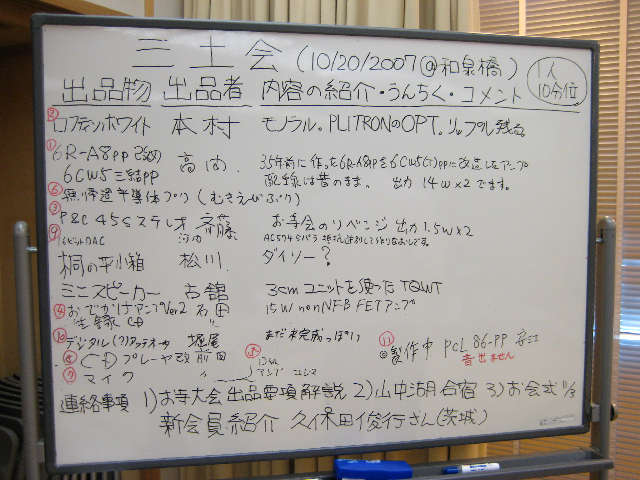 三土会 (10/20/2007@和泉橋)
1人 10分位
出品物 出品者 内容の紹介・うんちく・コメント
② ロフチンホワイト 本村 モノラル。PLITRONのOPT。リップル残留
① 6R-A8PP改め 高田 35年前に作った6R-A8PPを6CW5(T)PPに改造したアンプ
6CW5三結PP 配線は昔のまま。 出力 14W×2です。
⑥ 無帰還半導体プリ (むきえびぷり)
③ P&C 45S ステレオ 斉藤 お寺会のリベンジ 出力1.5W×2
⑨ 16ビットDAC 河内
桐の平小箱 松川. ダイソー?
ミニスピーカー 古舘 3cmユニットを使ったTQWT
④ おでかけアンプVer2 石田 15W nonNFB FETアンプ
生録CD 〃
⑩ デジタル(?)アッテネータ 堀尾 まだ未完成っぽい
⑧ CDプレーヤ改 前田
⑦ マイク 〃
⑪ ◎製作中 PCL86-PP
音出ません
連絡事項 1)お寺大会出品要項解説 2)山中湖合宿 3)お会式 11/3
新会員紹介 久保田俊行さん(茨城)